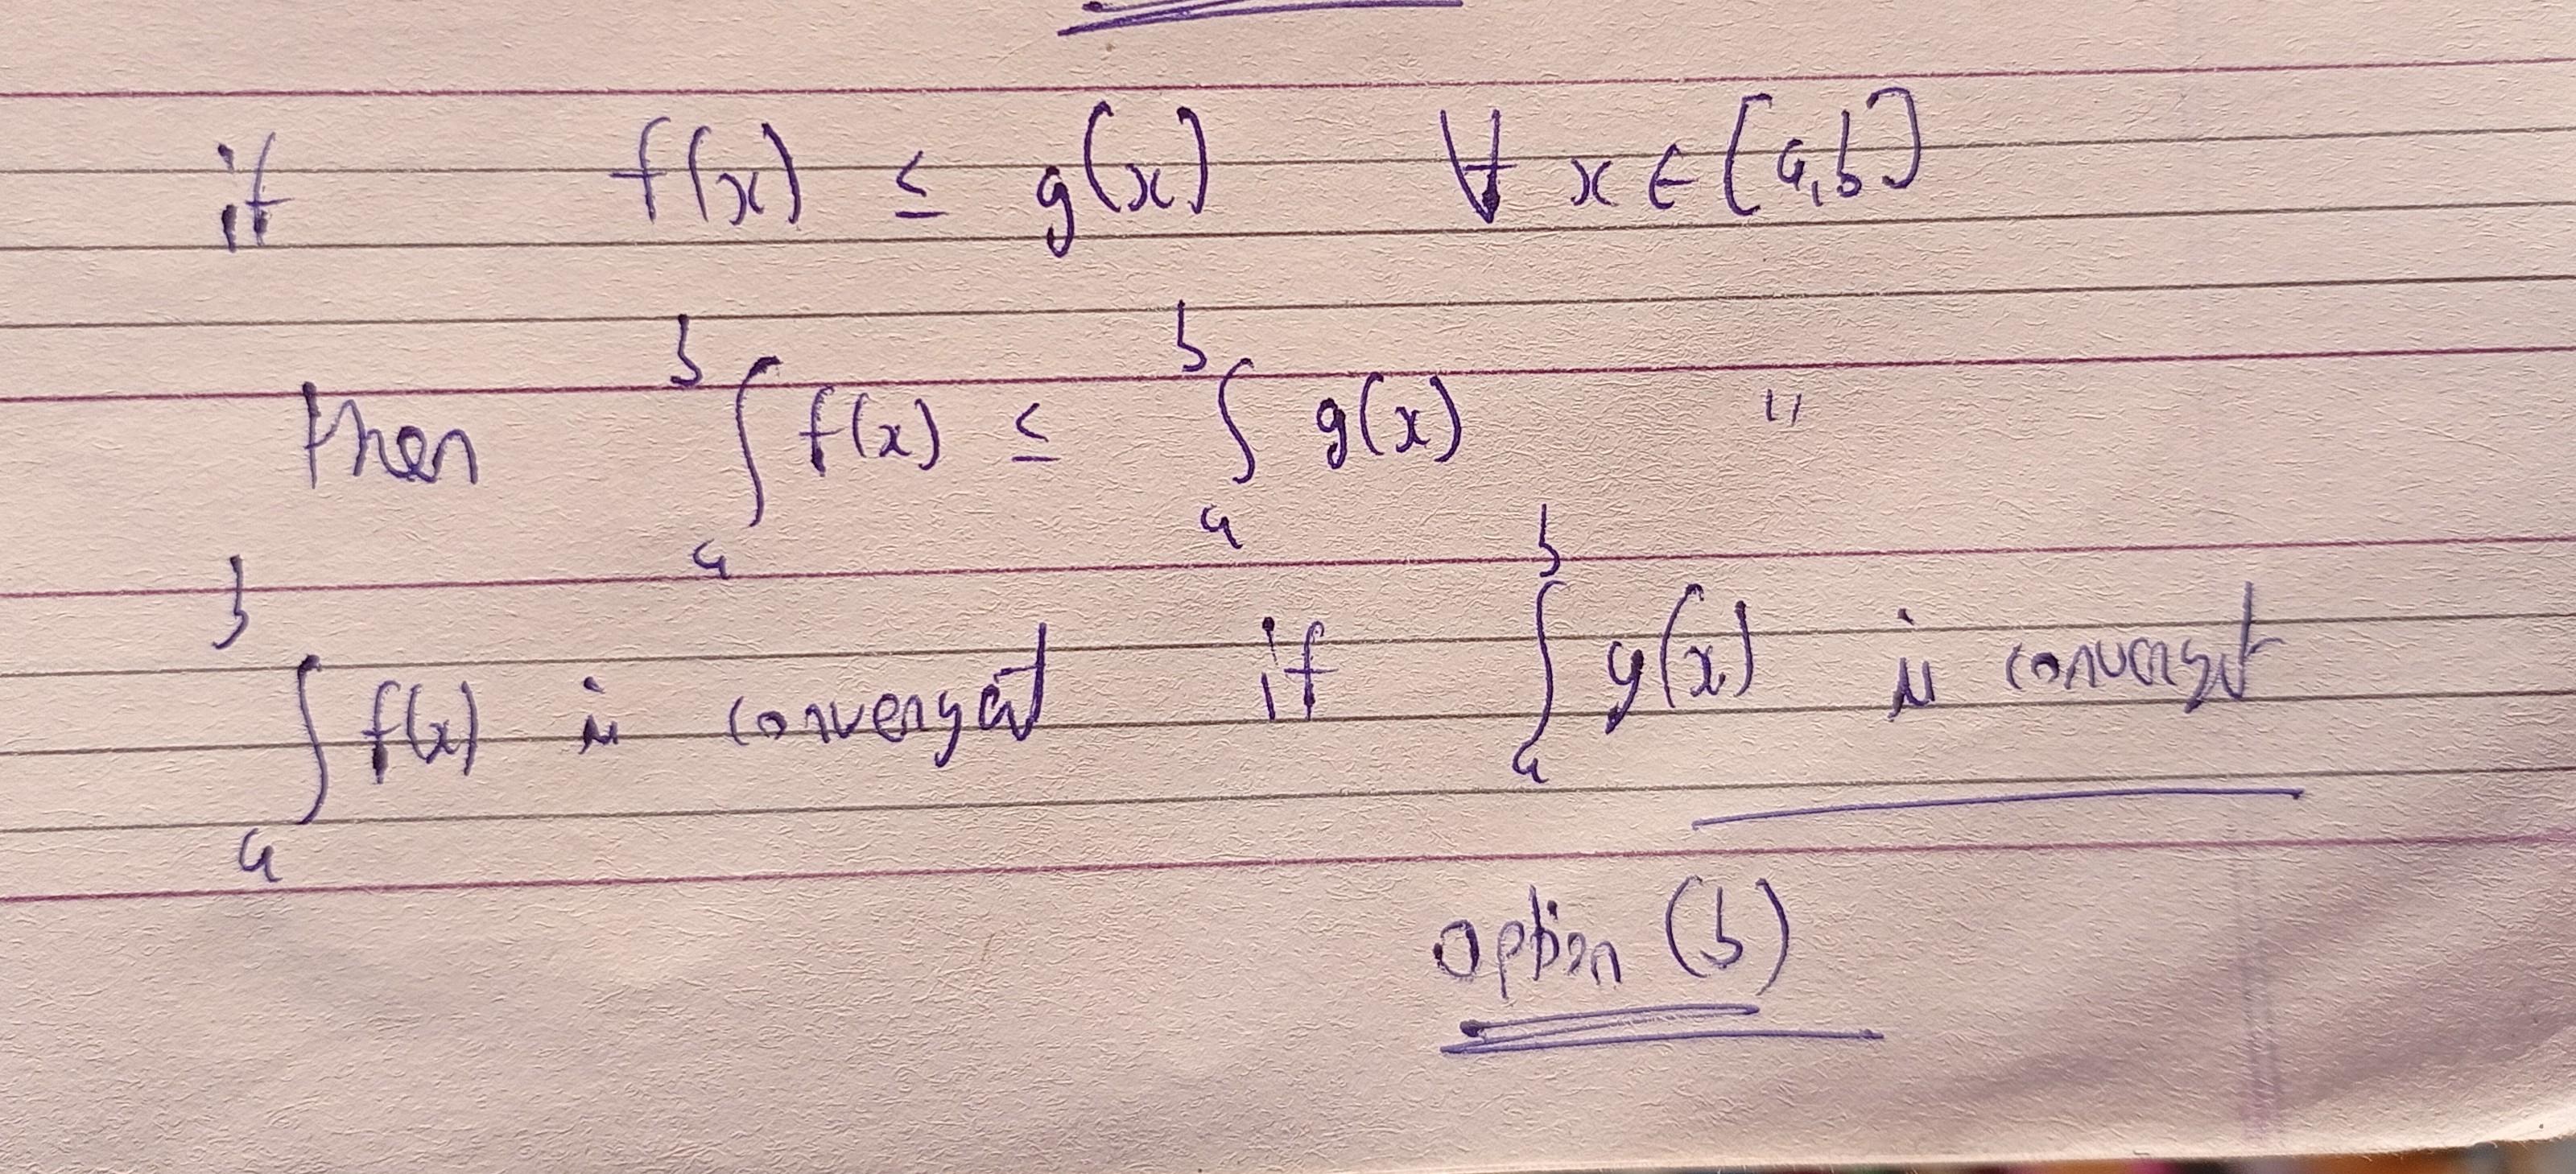 if f(x) ≤ g(x) ∀ x ∈ [a,b]
then ∫_a^b f(x) ≤ ∫_a^b g(x) "
∫_a^b f(x) is convergent if ∫_a^b g(x) is convergt
option (b)